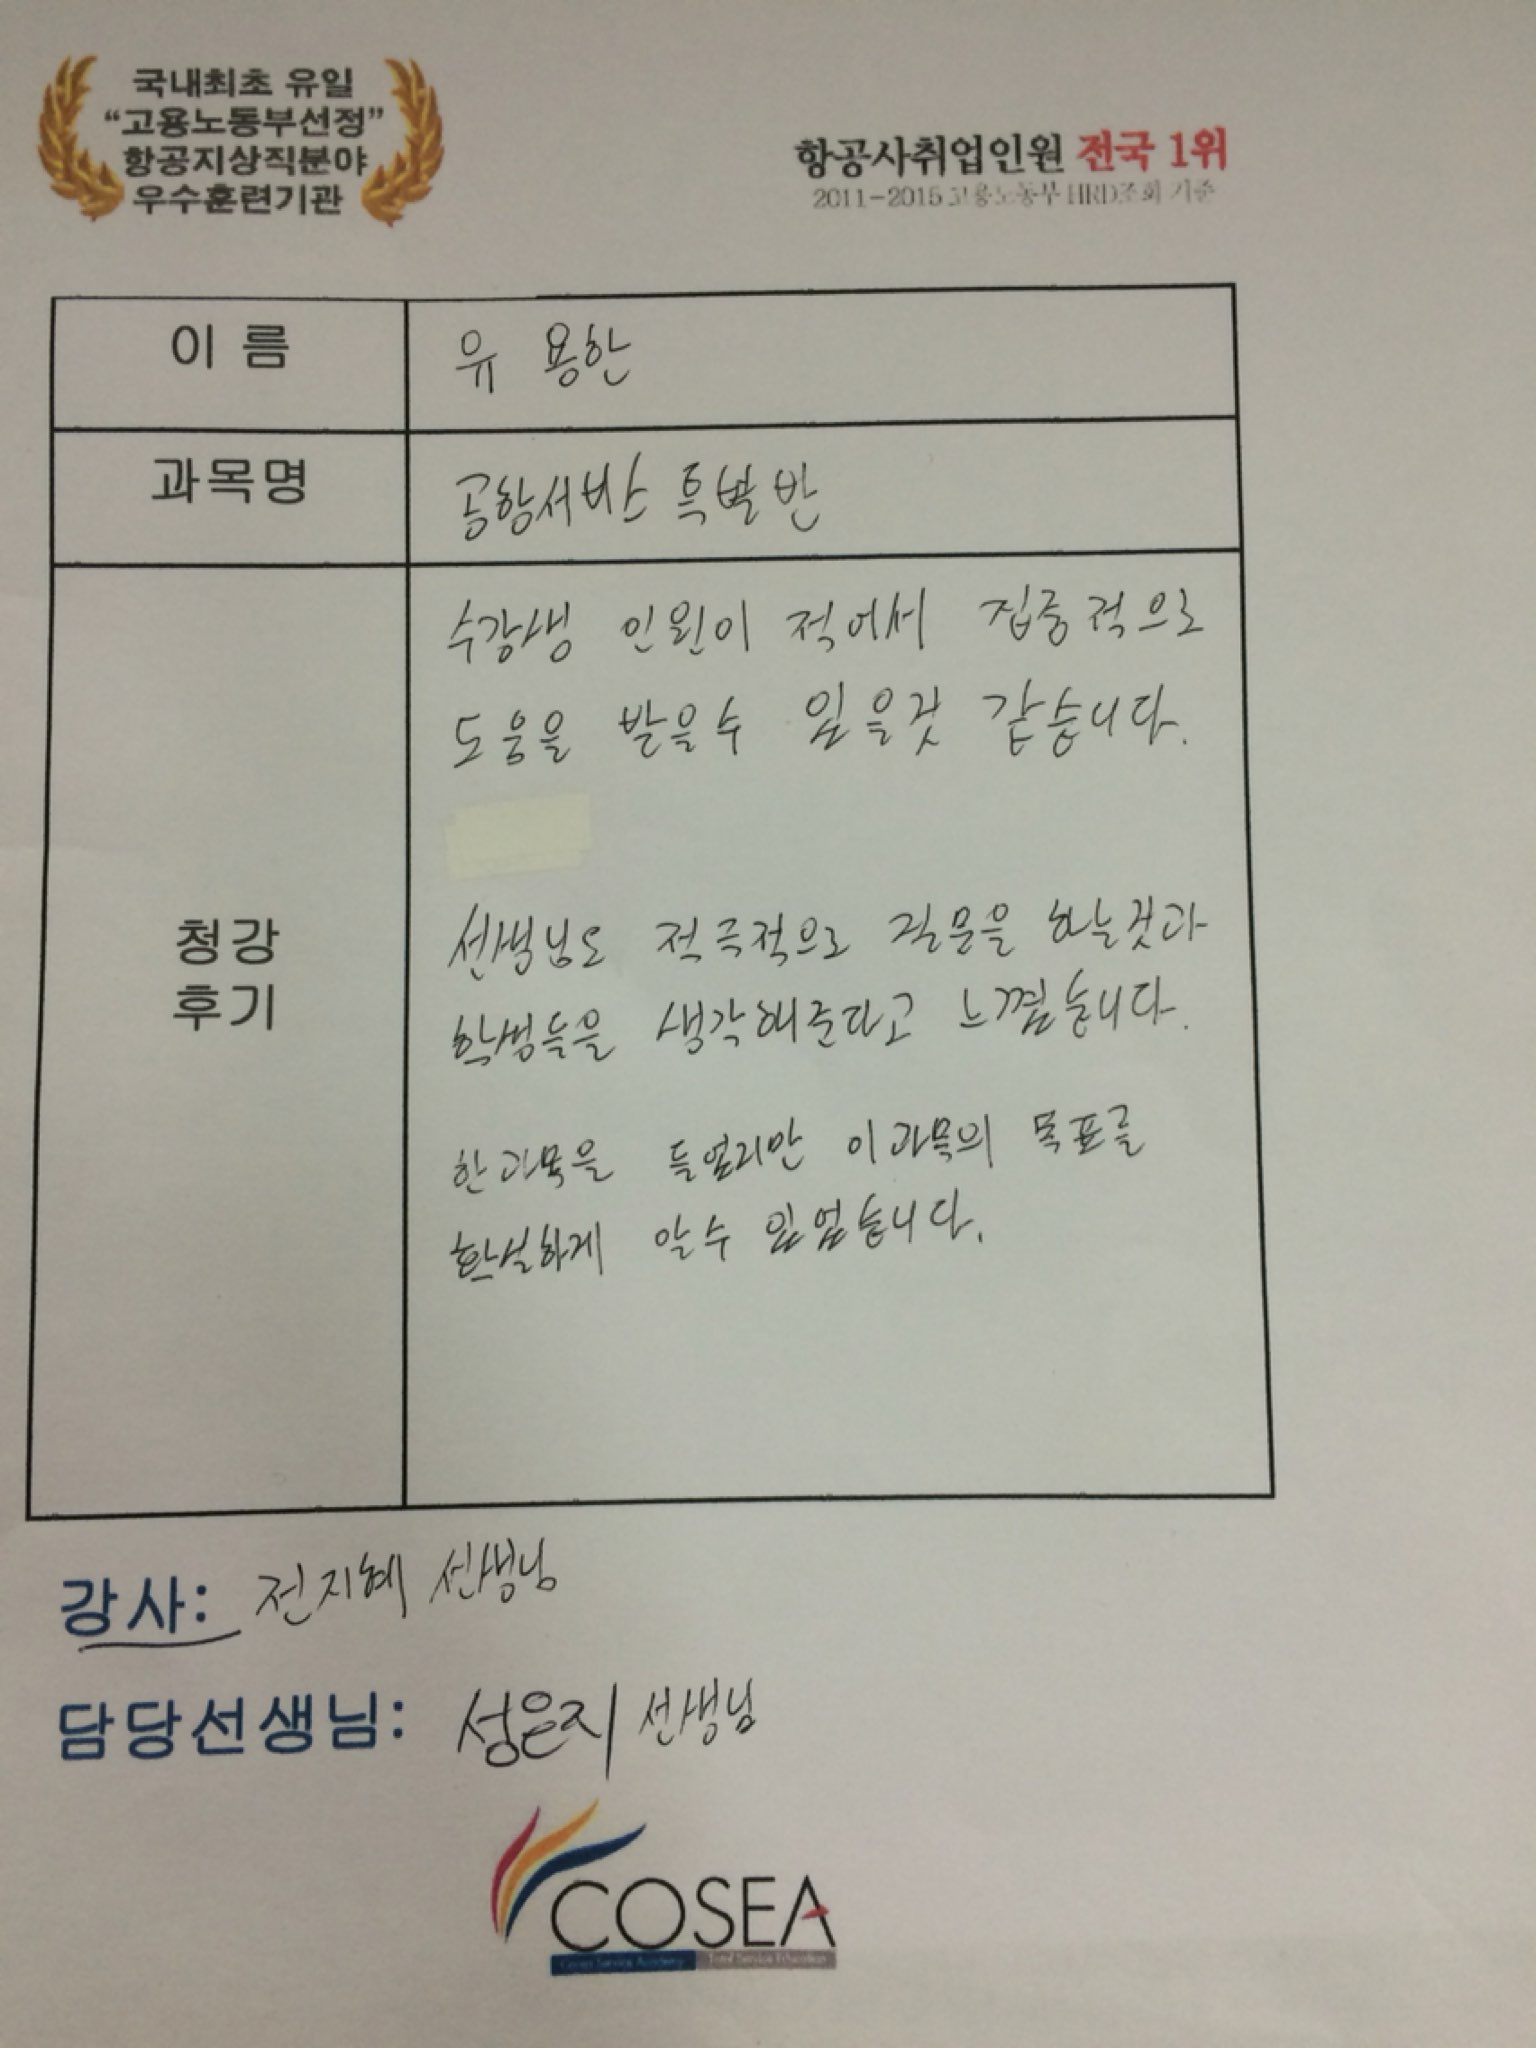 국내최초 유일
“고용노동부선정”
항공지상직분야
우수훈련기관
항공사취업인원 전국 1위
2011-2015 고용노동부 HRD조회 기준
이 름
유 용한
과목명
공항서비스 특별반
청강
후기
수강생 인원이 적어서 집중적으로
도움을 받을수 있을것 같습니다.
선생님도 적극적으로 질문을 하는것과
학생들을 생각해준다고 느꼈습니다.
한과목을 들었지만 이과목의 목표를
확실하게 알수 있었습니다.
강사: 전지혜 선생님
담당선생님: 성은지 선생님
COSEA
Service Academy Total Service Education